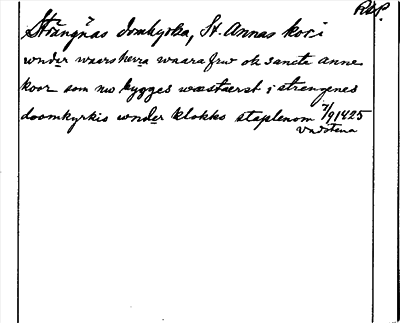 RAP.
Strängnäs domkyrka, St. Annas kor: i
wnder waars herra waara frw ok sancta anne
koor som nw bygges wæstaerst i strengenes
doomkyrkis wnder klokko staplenom 7/9 1425
Vadstena